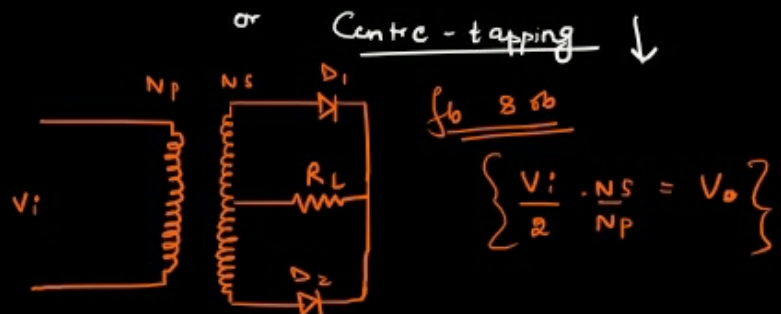 or Centre-tapping ↓
Np Ns D1
RL
Vi
D2
{ Vi/2 . NS/NP = Vo }